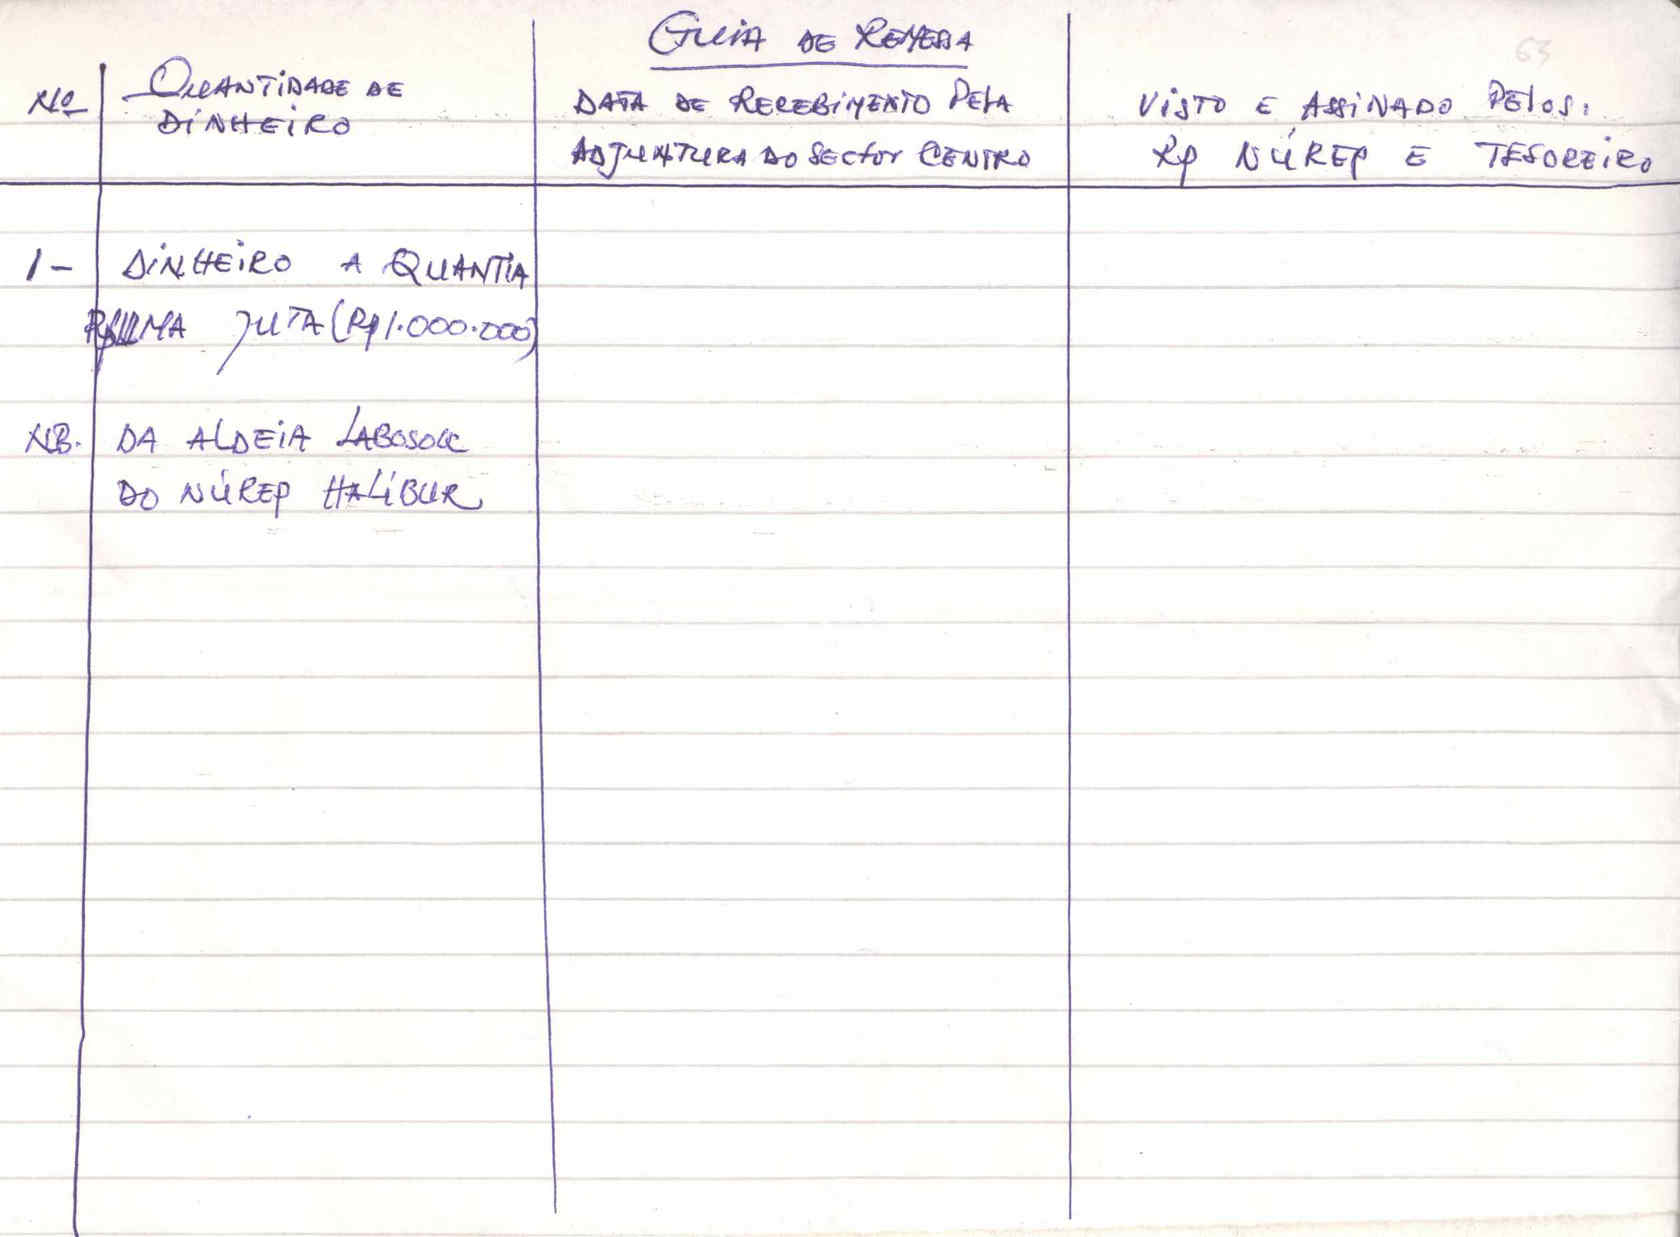 63
GUIA DE REMEBA
Nº
QUANTIDADE DE
DINHEIRO
DATA DE RECEBIMENTO PELA
ADJUNTURA DO SECTOR CENTRO
VISTO E ASSINADO PELOS:
RP NÚREP E TESOREIRO
1- DINHEIRO A QUANTIA
JUTA (Rp1.000.000)
NB. DA ALDEIA LABOSOLE
DO NÚREP HALIBUR